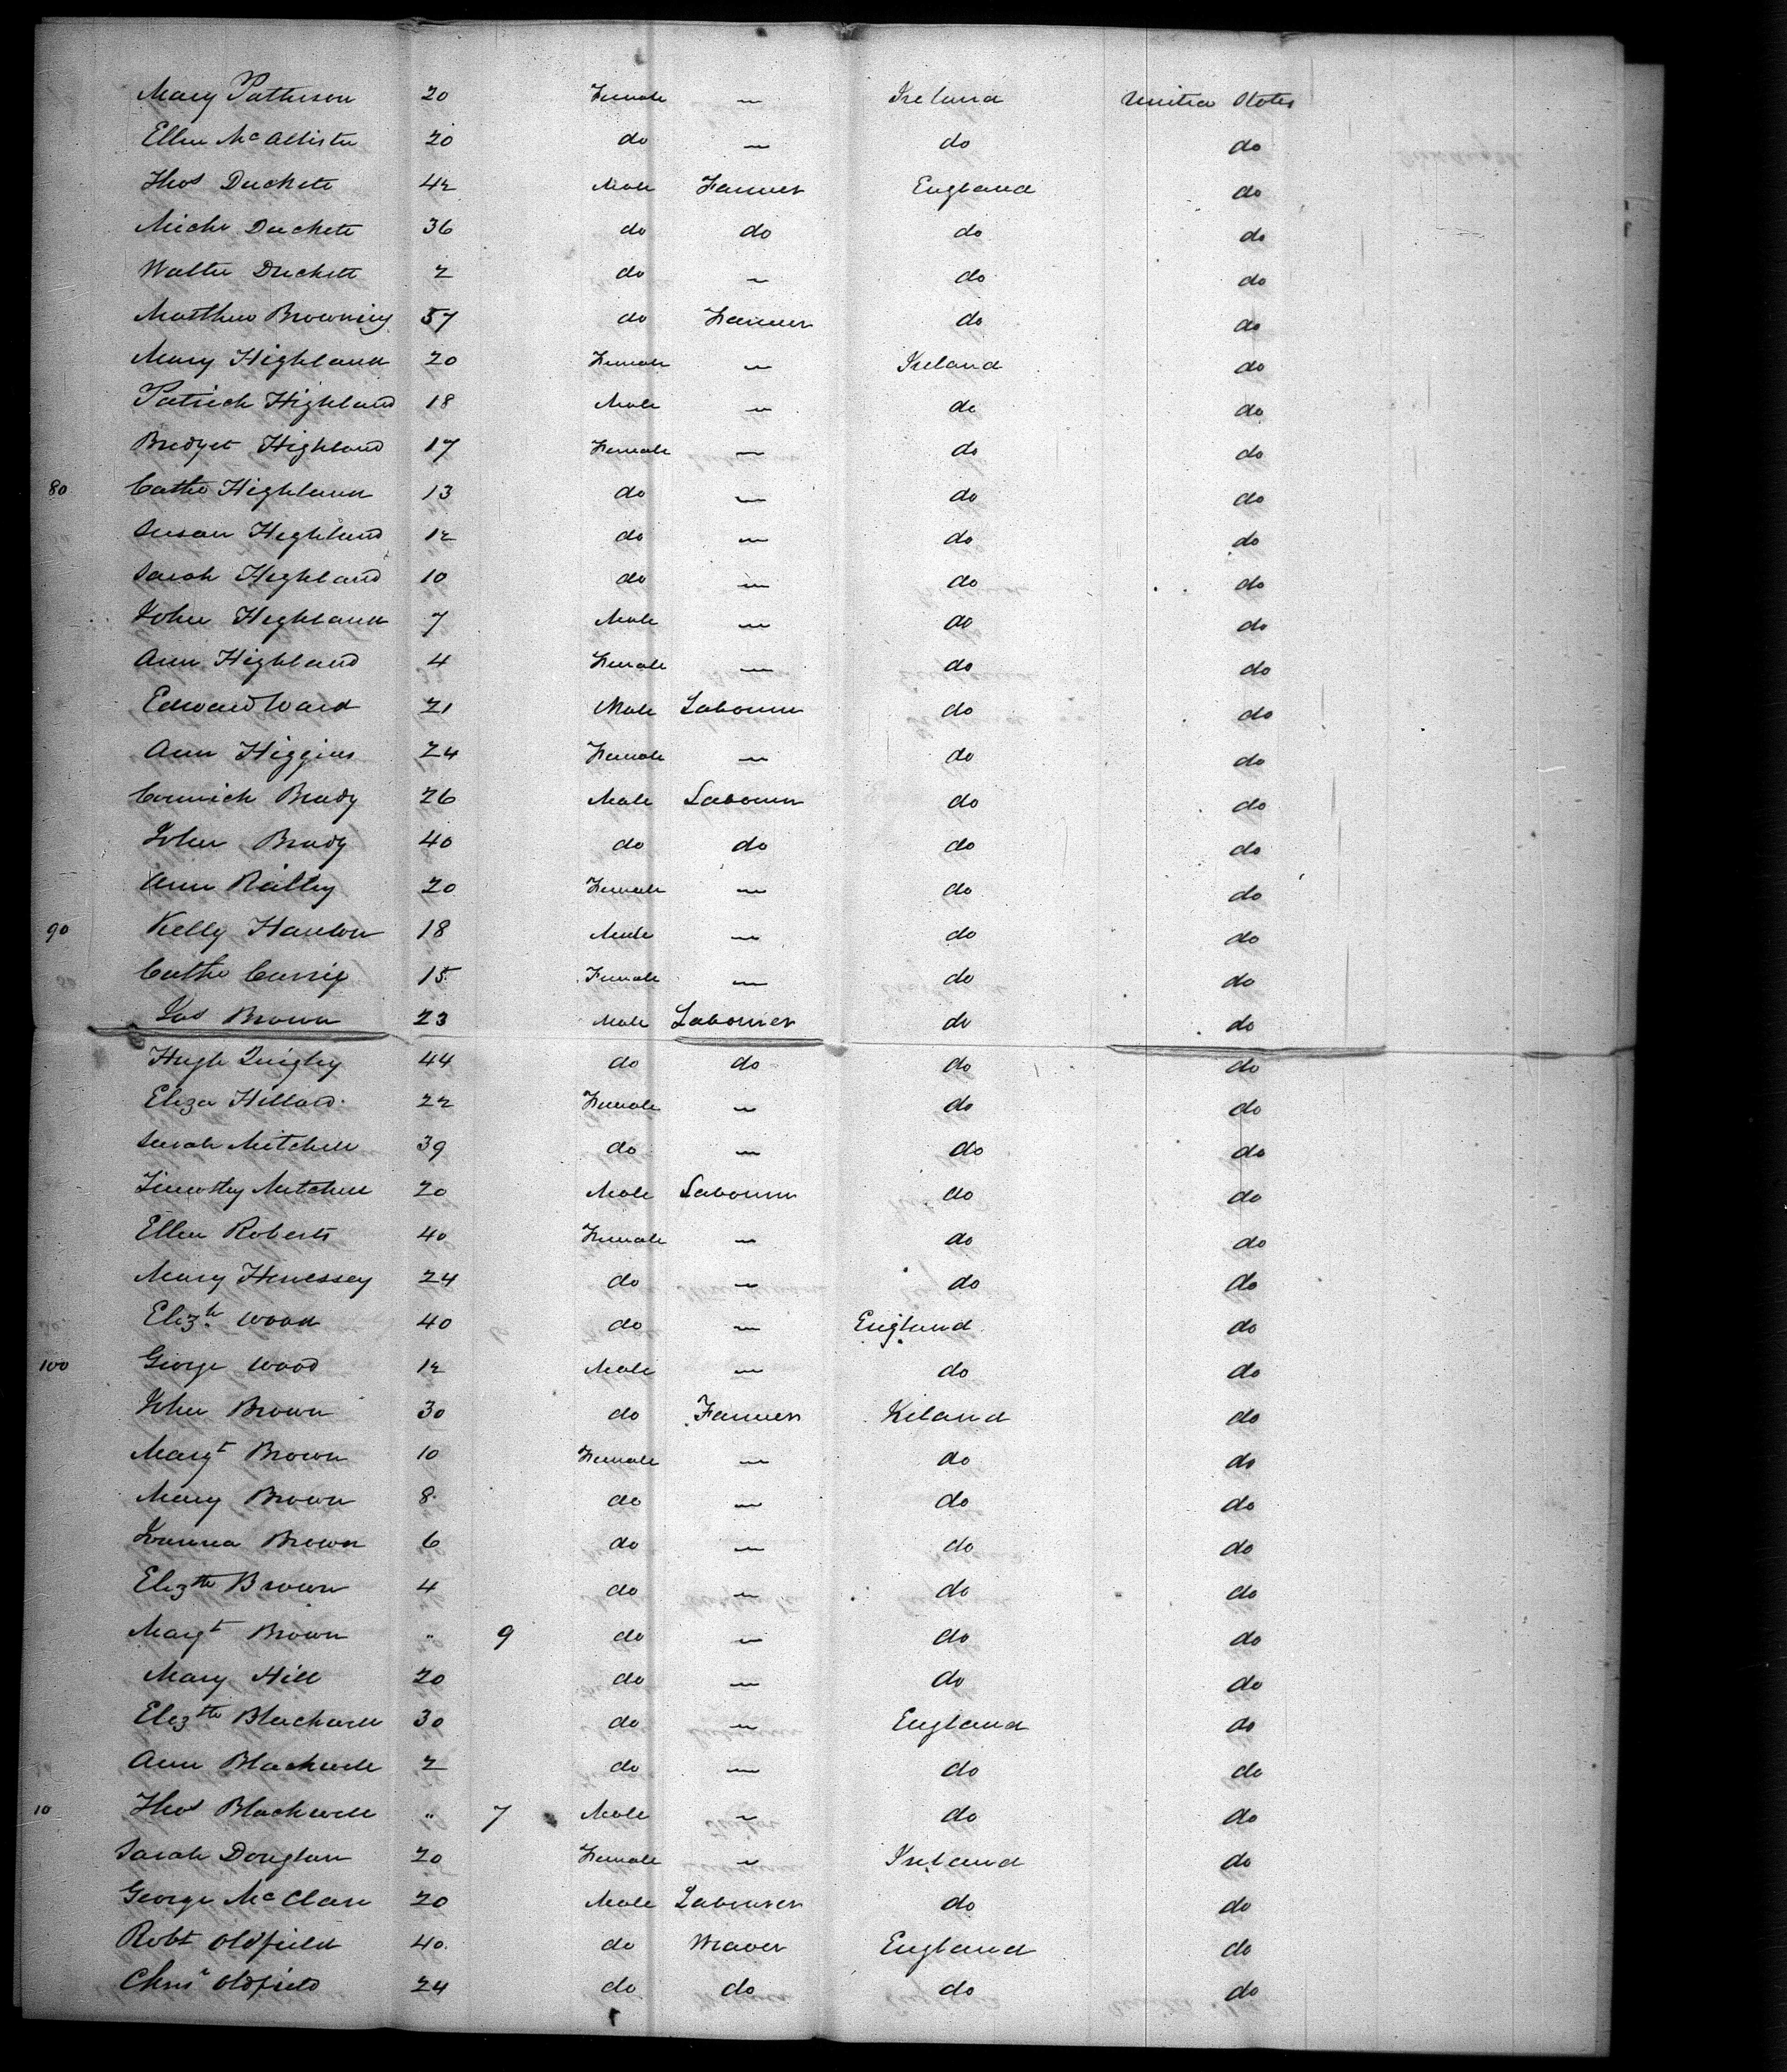 Mary Patterson 20 Female — Ireland United States
Ellen McAllister 20 do — do do
Thos Duckett 42 Male Farmer England do
Michl Duckett 36 do do do do
Walter Duckett 2 do — do do
Matthew Browning 57 do Farmer do do
Mary Highland 20 Female — Ireland do
Patrick Highland 18 Male — do do
Bridget Highland 17 Female — do do
80 Cathe Highland 13 do — do do
Susan Highland 12 do — do do
Sarah Highland 10 do — do do
John Highland 7 Male — do do
Ann Highland 4 Female — do do
Edward Ward 21 Male Labourer do do
Ann Higgins 24 Female — do do
Cormick Brady 26 Male Labourer do do
John Brady 40 do do do do
Ann Reilley 20 Female — do do
90 Kelly Hanlon 18 Male — do do
Cathe Carrig 15 Female — do do
Jas Brown 23 Male Labourer do do
Hugh Quigley 44 do do do do
Eliza Hillard 22 Female — do do
Sarah Mitchell 39 do — do do
Timothy Mitchell 20 Male Labourer do do
Ellen Roberts 40 Female — do do
Mary Henessey 24 do — do do
Elizh Wood 40 do — England do
100 George Wood 12 Male — do do
John Brown 30 do Farmer Ireland do
Margt Brown 10 Female — do do
Mary Brown 8 do — do do
Joanna Brown 6 do — do do
Elizth Brown 4 do — do do
Margt Brown " 9 do — do do
Mary Hill 20 do — do do
Elizth Blackwell 30 do — England do
Ann Blackwell 2 do — do do
10 Thos Blackwell " 7 Male — do do
Sarah Douglass 20 Female — Ireland do
George McClare 20 Male Labourer do do
Robt Oldfield 40 do Weaver England do
Chrisr Oldfield 24 do do do do